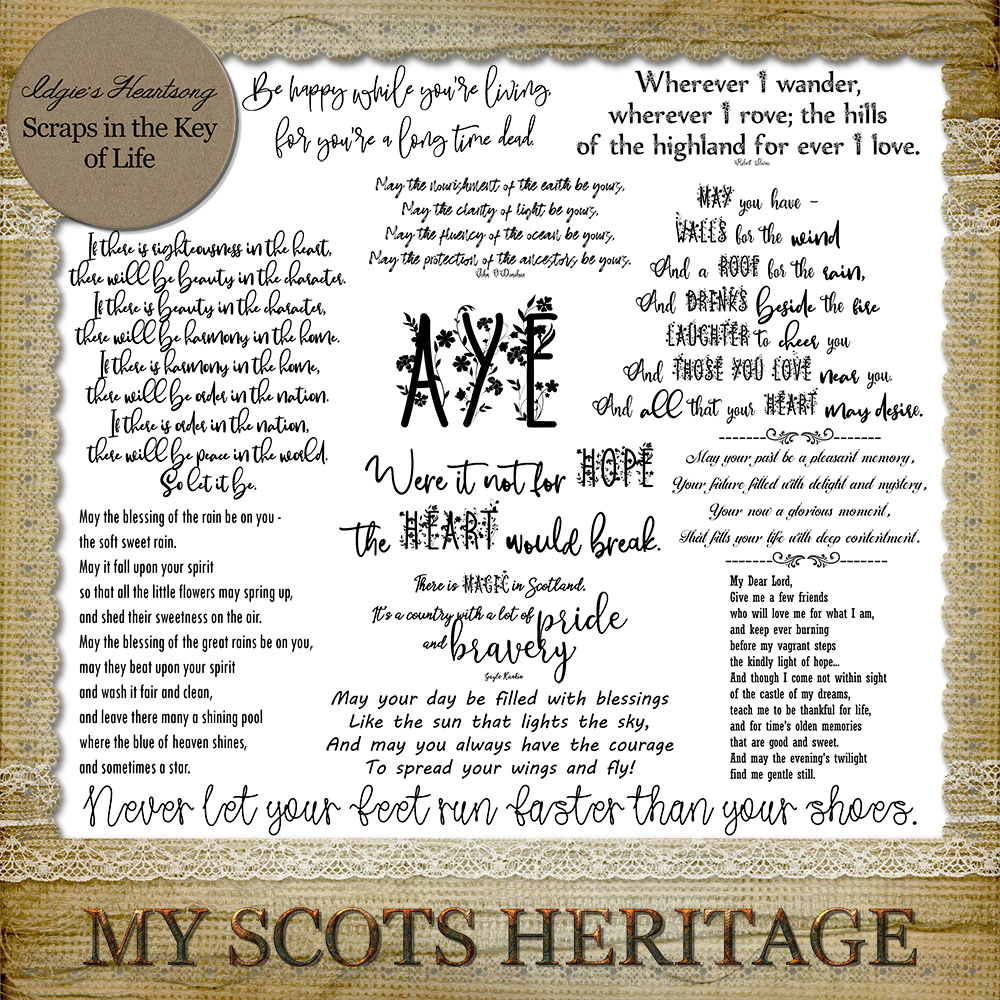 Idgie's Heartsong
Scraps in the Key
of Life
Be happy while you're living,
for you're a long time dead.
Wherever I wander,
wherever I rove; the hills
of the highland for ever I love.
Robert Burns
May the nourishment of the earth be yours,
May the clarity of light be yours,
May the fluency of the ocean be yours,
May the protection of the ancestors be yours.
John O'Donohue
If there is righteousness in the heart,
there will be beauty in the charater.
If there is beauty in the character,
there will be harmony in the home.
If there is harmony in the home,
there will be order in the nation.
If there is order in the nation,
there will be peace in the world.
So let it be.
AYE
MAY you have -
WALLS for the wind
And a ROOF for the rain,
And DRINKS Beside the fire
LAUGHTER to cheer you
And THOSE YOU LOVE near you.
And all that your HEART may desire.
Were it not for HOPE
the HEART would break.
May your past be a pleasant memory,
Your future filled with delight and mystery,
Your now a glorious moment,
That fills your life with deep contentment.
May the blessing of the rain be on you -
the soft sweet rain.
May it fall upon your spirit
so that all the little flowers may spring up,
and shed their sweetness on the air.
May the blessing of the great rains be on you,
may they beat upon your spirit
and wash it fair and clean,
and leave there many a shining pool
where the blue of heaven shines,
and sometimes a star.
There is MAGIC in Scotland.
It's a country with a lot of pride
and bravery
Gayle Rankin
May your day be filled with blessings
Like the sun that lights the sky,
And may you always have the courage
To spread your wings and fly!
My Dear Lord,
Give me a few friends
who will love me for what I am,
and keep ever burning
before my vagrant steps
the kindly light of hope...
And though I come not within sight
of the castle of my dreams,
teach me to be thankful for life,
and for time's olden memories
that are good and sweet.
And may the evening's twilight
find me gentle still.
Never let your feet run faster than your shoes.
MY SCOTS HERITAGE